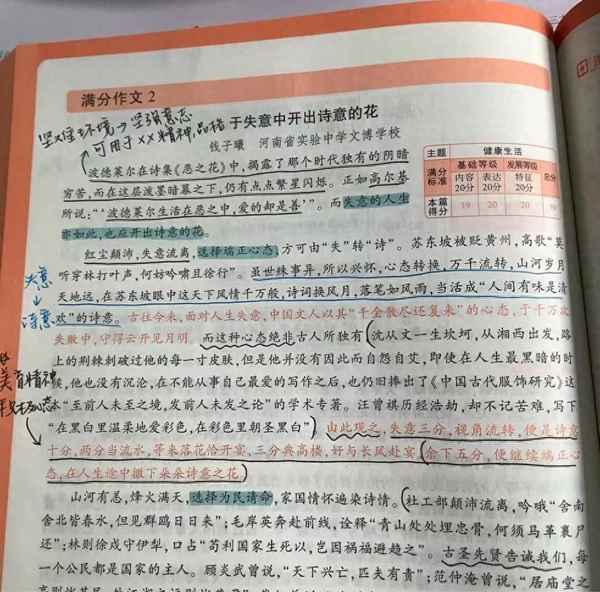 满分作文2
于失意中开出诗意的花
钱子曦 河南省实验中学文博学校
坚强意志
可用于××精神,品格
主题 健康生活
满分标准 基础等级 发展等级 总分
内容 表达 特征
20分 20分 20分
本篇得分 19 20 20
波德莱尔在诗集《恶之花》中,揭露了那个时代独有的阴暗
穷苦,而在这层泼墨暗幕之下,仍有点点繁星闪烁。正如高尔基
所说:“‘波德莱尔生活在恶之中,爱的却是善’”。而失意的人生
亦如此,也应开出诗意的花。
红尘颠沛,失意流离,选择端正心态,方可由“失”转“诗”。苏东坡被贬黄州,高歌“莫
听穿林打叶声,何妨吟啸且徐行”。虽世殊事异,所以兴怀,心态转换,万千流转,山河岁月
天地远,在苏东坡眼中这天下风情千万般,诗词换风月,落笔如风雨,当活成“人间有味是清
欢”的诗意。古往今来,面对人生失意,中国文人以其“千金散尽还复来”的心态,于千万次
失败中,守得云开见月明。而这种心态绝非古人所独有(沈从文一生坎坷,从湘西出发,路
上的荆棘刺破过他的每一寸皮肤,但是他并没有因此而自怨自艾,即使在人生最黑暗的时
候,他也没有沉沦,在不能从事自己最爱的写作之后,也仍旧捧出了《中国古代服饰研究》这
本“至前人未至之境,发前人未发之论”的学术专著。汪曾祺历经浩劫,却不记苦难,写下
“在黑白里温柔地爱彩色,在彩色里朝圣黑白”)由此现之,失意三分,视角流转,便是诗意
十分,两分当流水,等来落花恰开宴,三分典高楼,好与长风赴宴(余下五分,便继续端正心
态,在人生途中撒下朵朵诗意之花)
山河有恙,烽火满天,选择为民请命,家国情怀遍染诗情。(杜工部颠沛流离,吟哦“舍南
舍北皆春水,但见群鸥日日来”;毛岸英奔赴前线,诠释“青山处处埋忠骨,何须马革裹尸
还”;林则徐戍守伊犁,口占“苟利国家生死以,岂因祸福避趋之”。古圣先贤告诫我们,每
一个公民都是国家的主人。顾炎武曾说,“天下兴亡,匹夫有责”;范仲淹曾说,“居庙堂之
失意
↓
诗意